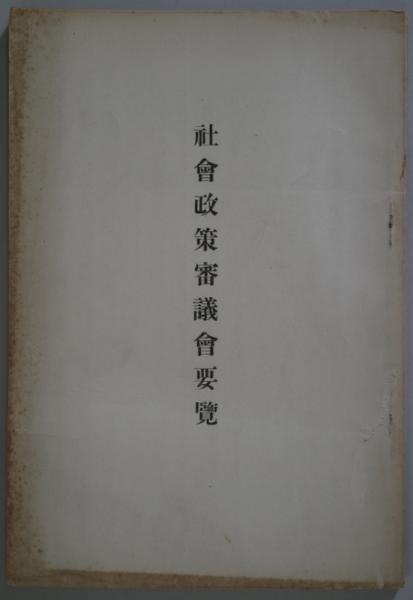 社會政策審議會要覽